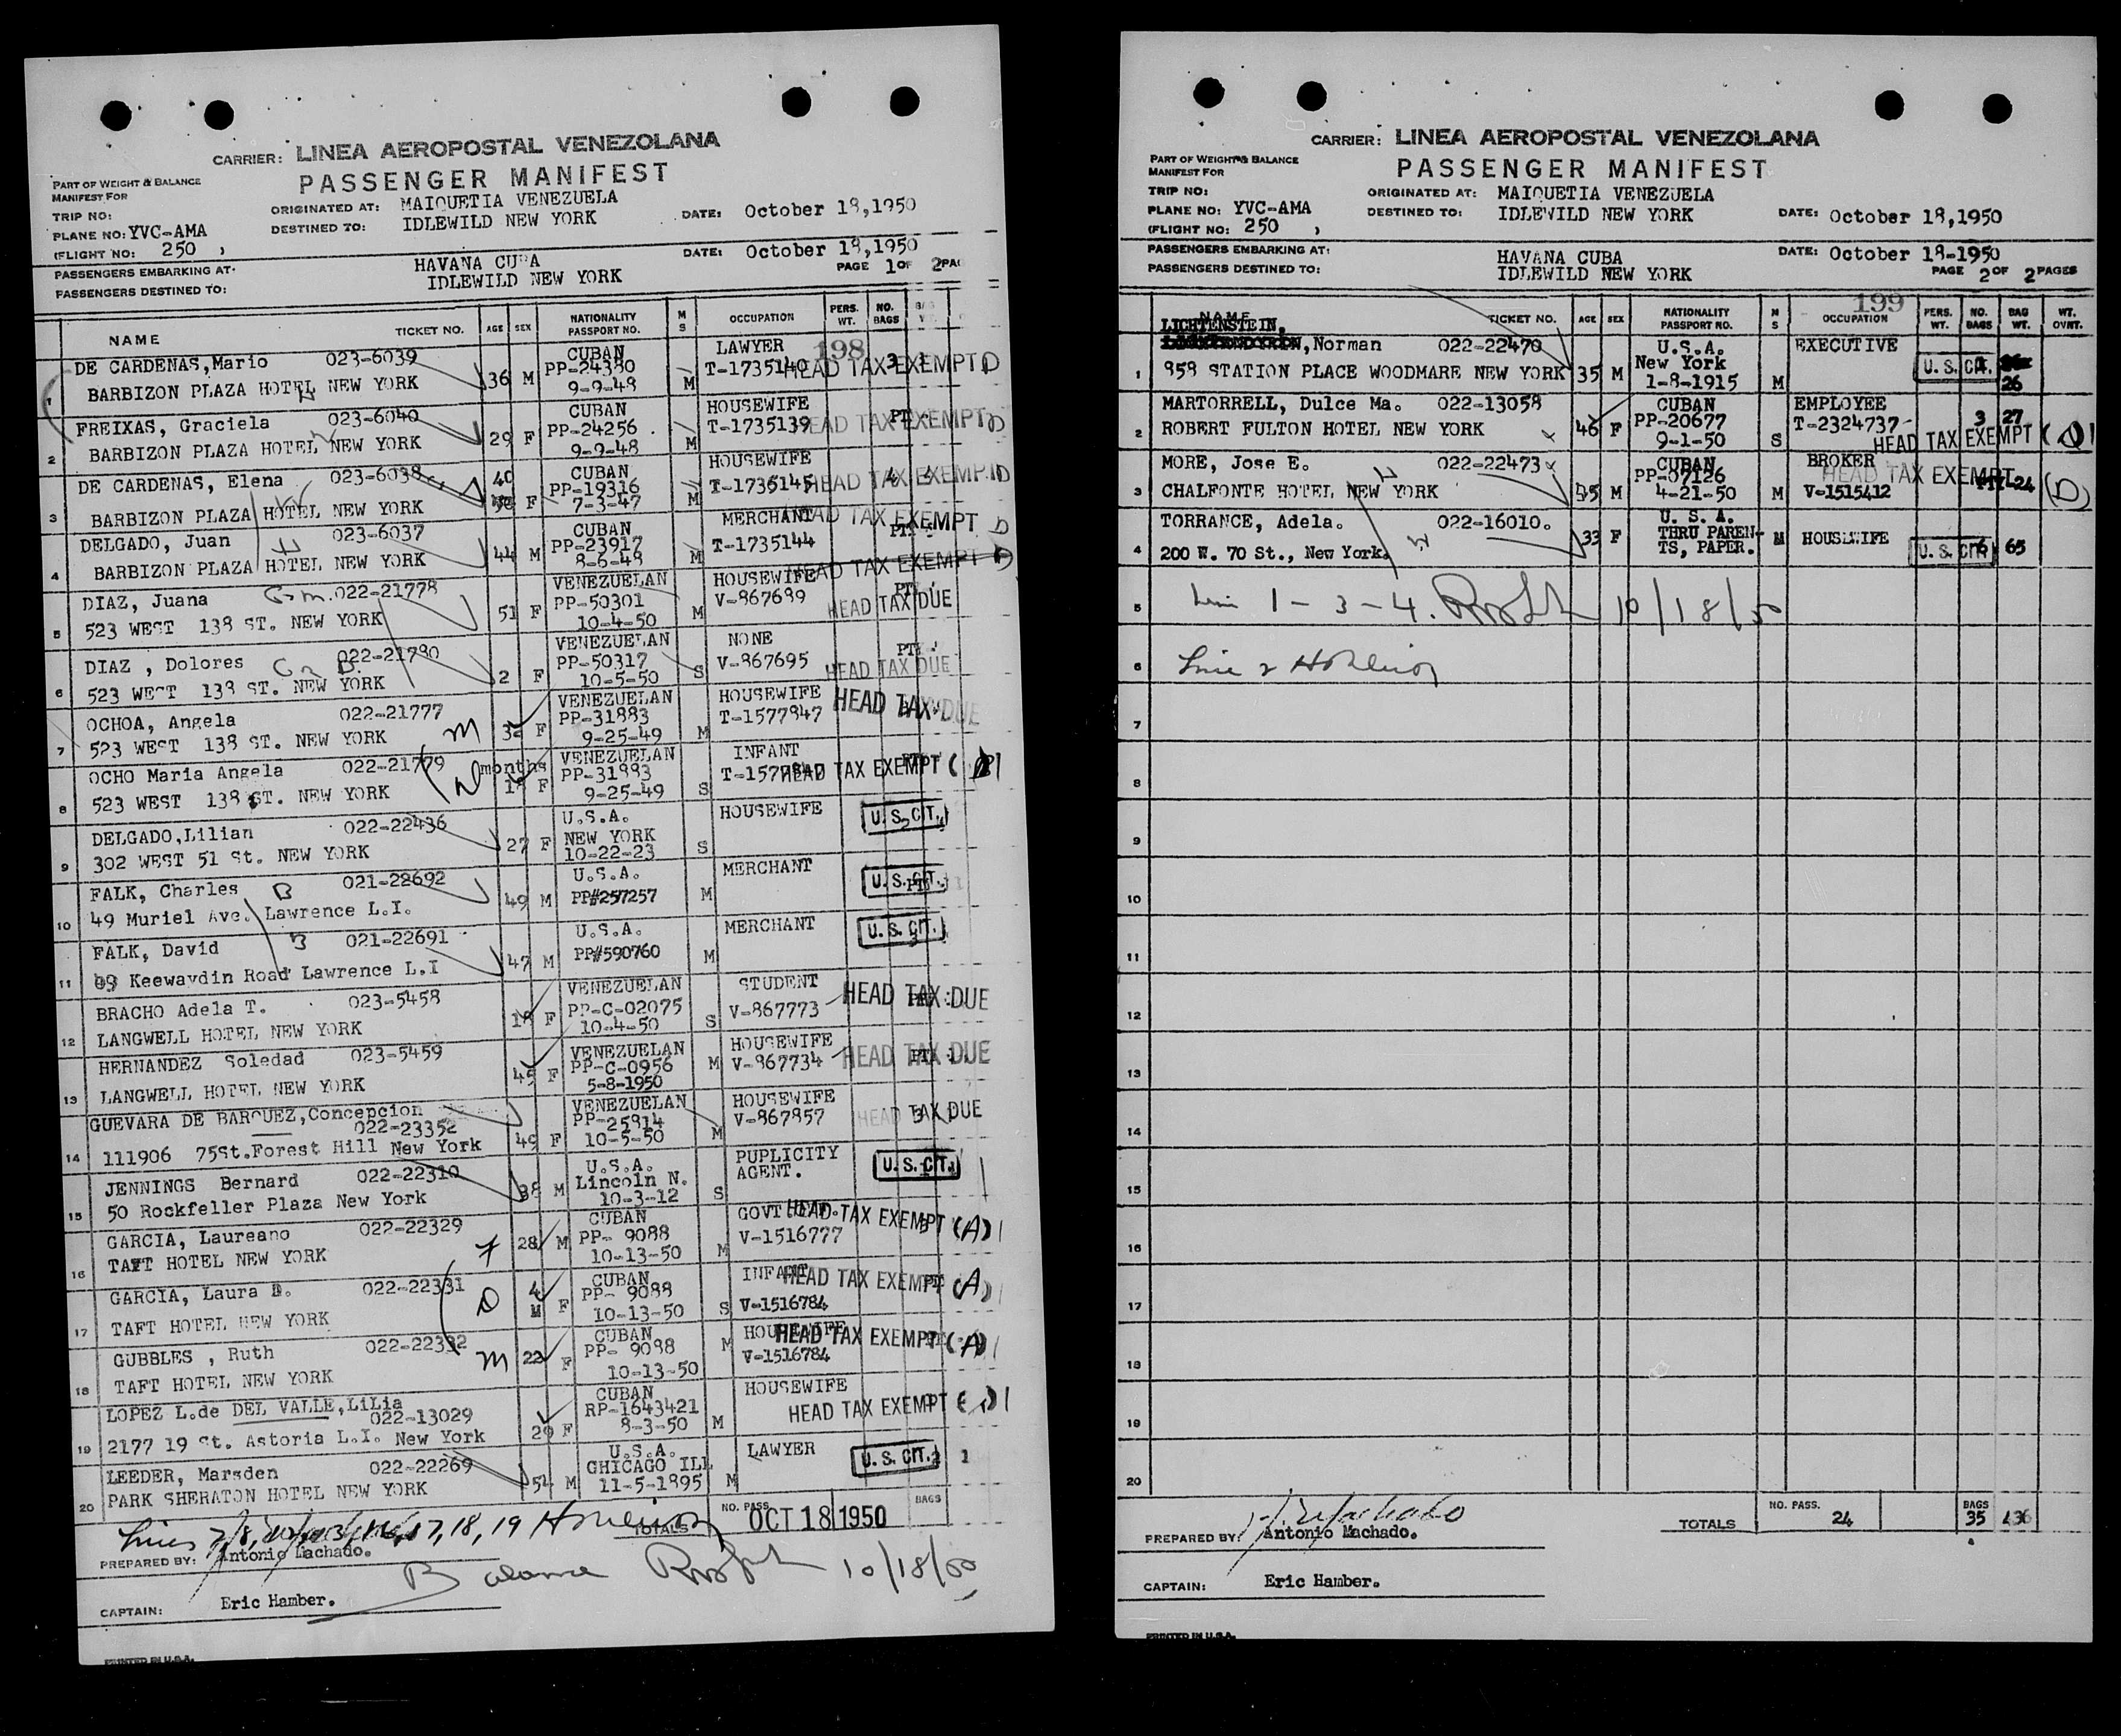 CARRIER: LINEA AEROPOSTAL VENEZOLANA
PASSENGER MANIFEST
PART OF WEIGHT & BALANCE
MANIFEST FOR
TRIP NO:
PLANE NO: YVC-AMA
(FLIGHT NO: 250 )
ORIGINATED AT: MAIQUETIA VENEZUELA
DESTINED TO: IDLEWILD NEW YORK
DATE: October 18,1950
PASSENGERS EMBARKING AT: HAVANA CUBA
PASSENGERS DESTINED TO: IDLEWILD NEW YORK
DATE: October 18,1950
PAGE 1 OF 2 PA
NAME TICKET NO. AGE SEX NATIONALITY PASSPORT NO. M S OCCUPATION PERS. WT. NO. BAGS
198
1 DE CARDENAS,Mario 023-6039 36 M CUBAN LAWYER
BARBIZON PLAZA HOTEL NEW YORK PP-24380 9-9-48 M T-1735140 HEAD TAX EXEMPT D
2 FREIXAS, Graciela 023-6040 29 F CUBAN HOUSEWIFE
BARBIZON PLAZA HOTEL NEW YORK PP-24256 9-9-48 M T-1735139 HEAD TAX EXEMPT D
3 DE CARDENAS, Elena 023-6038 40 F CUBAN HOUSEWIFE
BARBIZON PLAZA HOTEL NEW YORK PP-19316 7-3-47 M T-1735145 HEAD TAX EXEMPT D
4 DELGADO, Juan 023-6037 44 M CUBAN MERCHANT
BARBIZON PLAZA HOTEL NEW YORK PP-23917 8-6-48 M T-1735144 HEAD TAX EXEMPT D
HEAD TAX EXEMPT
5 DIAZ, Juana 022-21778 51 F VENEZUELAN HOUSEWIFE
523 WEST 138 ST. NEW YORK PP-50301 10-4-50 M V-867689 HEAD TAX DUE
6 DIAZ , Dolores 022-21780 2 F VENEZUELAN NONE
523 WEST 138 ST. NEW YORK PP-50317 10-5-50 S V-867695 HEAD TAX DUE
7 OCHOA, Angela 022-21777 M F VENEZUELAN HOUSEWIFE
523 WEST 138 ST. NEW YORK PP-31883 9-25-49 M T-1577847 HEAD TAX DUE
8 OCHO Maria Angela 022-21779 months F VENEZUELAN INFANT
523 WEST 138 ST. NEW YORK PP-31883 9-25-49 S HEAD TAX EXEMPT
9 DELGADO,Lilian 022-22436 27 F U.S.A. HOUSEWIFE
302 WEST 51 St. NEW YORK NEW YORK 10-22-23 S U. S. CIT.
10 FALK, Charles B 021-22692 49 M U.S.A. MERCHANT
49 Muriel Ave. Lawrence L.I. PP#257257 M U. S. CIT.
11 FALK, David B 021-22691 47 M U.S.A. MERCHANT
Keewaydin Road Lawrence L.I PP#590760 M U. S. CIT.
12 BRACHO Adela T. 023-5458 F VENEZUELAN STUDENT
LANGWELL HOTEL NEW YORK PP-C-02075 10-4-50 S V-867773 HEAD TAX DUE
13 HERNANDEZ Soledad 023-5459 45 F VENEZUELAN HOUSEWIFE
LANGWELL HOTEL NEW YORK PP-C-0956 5-8-1950 M V-867734 HEAD TAX DUE
14 GUEVARA DE BARQUEZ,Concepcion 022-23352 49 F VENEZUELAN HOUSEWIFE
111906 75St.Forest Hill New York PP-25814 10-5-50 M V-867857 HEAD TAX DUE
15 JENNINGS Bernard 022-22310 38 M U.S.A. PUPLICITY AGENT.
50 Rockfeller Plaza New York Lincoln N. 10-3-12 S U. S. CIT.
16 GARCIA, Laureano 022-22329 28 M CUBAN GOVT
TAFT HOTEL NEW YORK PP- 9088 10-13-50 M V-1516777 HEAD TAX EXEMPT (A)
17 GARCIA, Laura D. 022-22331 4 M F CUBAN INFANT
TAFT HOTEL NEW YORK PP- 9088 10-13-50 S V-1516784 HEAD TAX EXEMPT (A)
18 GUBBLES , Ruth 022-22332 M 22 F CUBAN HOUSEWIFE
TAFT HOTEL NEW YORK PP- 9088 10-13-50 M V-1516784 HEAD TAX EXEMPT (A)
19 LOPEZ L.de DEL VALLE,LiLia 022-13029 29 F CUBAN HOUSEWIFE
2177 19 St. Astoria L.I. New York RP-1643421 8-3-50 M HEAD TAX EXEMPT
20 LEEDER, Marsden 022-22269 54 M U.S.A. LAWYER
PARK SHERATON HOTEL NEW YORK GHICAGO ILL 11-5-1895 M U. S. CIT.
TOTALS NO. PASS. OCT 18 1950 BAGS
PREPARED BY: Antonio Machado.
Balance 10/18/50
CAPTAIN: Eric Hamber.
PRINTED IN U.S.A.
CARRIER: LINEA AEROPOSTAL VENEZOLANA
PASSENGER MANIFEST
PART OF WEIGHT & BALANCE
MANIFEST FOR
TRIP NO:
PLANE NO: YVC-AMA
(FLIGHT NO: 250 )
ORIGINATED AT: MAIQUETIA VENEZUELA
DESTINED TO: IDLEWILD NEW YORK
DATE: October 18,1950
PASSENGERS EMBARKING AT: HAVANA CUBA
PASSENGERS DESTINED TO: IDLEWILD NEW YORK
DATE: October 18-1950
PAGE 2 OF 2 PAGES
NAME TICKET NO. AGE SEX NATIONALITY PASSPORT NO. M S OCCUPATION PERS. WT. NO. BAGS BAG WT. WT. OVNT.
199
1 LICHTENSTEIN, Norman 022-22470 35 M U.S.A. EXECUTIVE
958 STATION PLACE WOODMARE NEW YORK New York 1-8-1915 M U. S. CIT. 26
2 MARTORRELL, Dulce Ma. 022-13058 46 F CUBAN EMPLOYEE 3 27
ROBERT FULTON HOTEL NEW YORK PP-20677 9-1-50 S T-2324737 HEAD TAX EXEMPT (D)
3 MORE, Jose E. 022-22473 M CUBAN BROKER
CHALFONTE HOTEL NEW YORK PP-07126 4-21-50 M V-1515412 HEAD TAX EXEMPT 24 (D)
4 TORRANCE, Adela. 022-16010. 33 F U. S. A. HOUSEWIFE
200 W. 70 St., New York. THRU PAREN-TS, PAPER. M U. S. CIT. 6 65
5 1 - 3 - 4. 10/18/50
6 Line 2
7
8
9
10
11
12
13
14
15
16
17
18
19
20
TOTALS NO. PASS. 24 BAGS 35 136
PREPARED BY: Antonio Machado.
CAPTAIN: Eric Hamber.
PRINTED IN U.S.A.